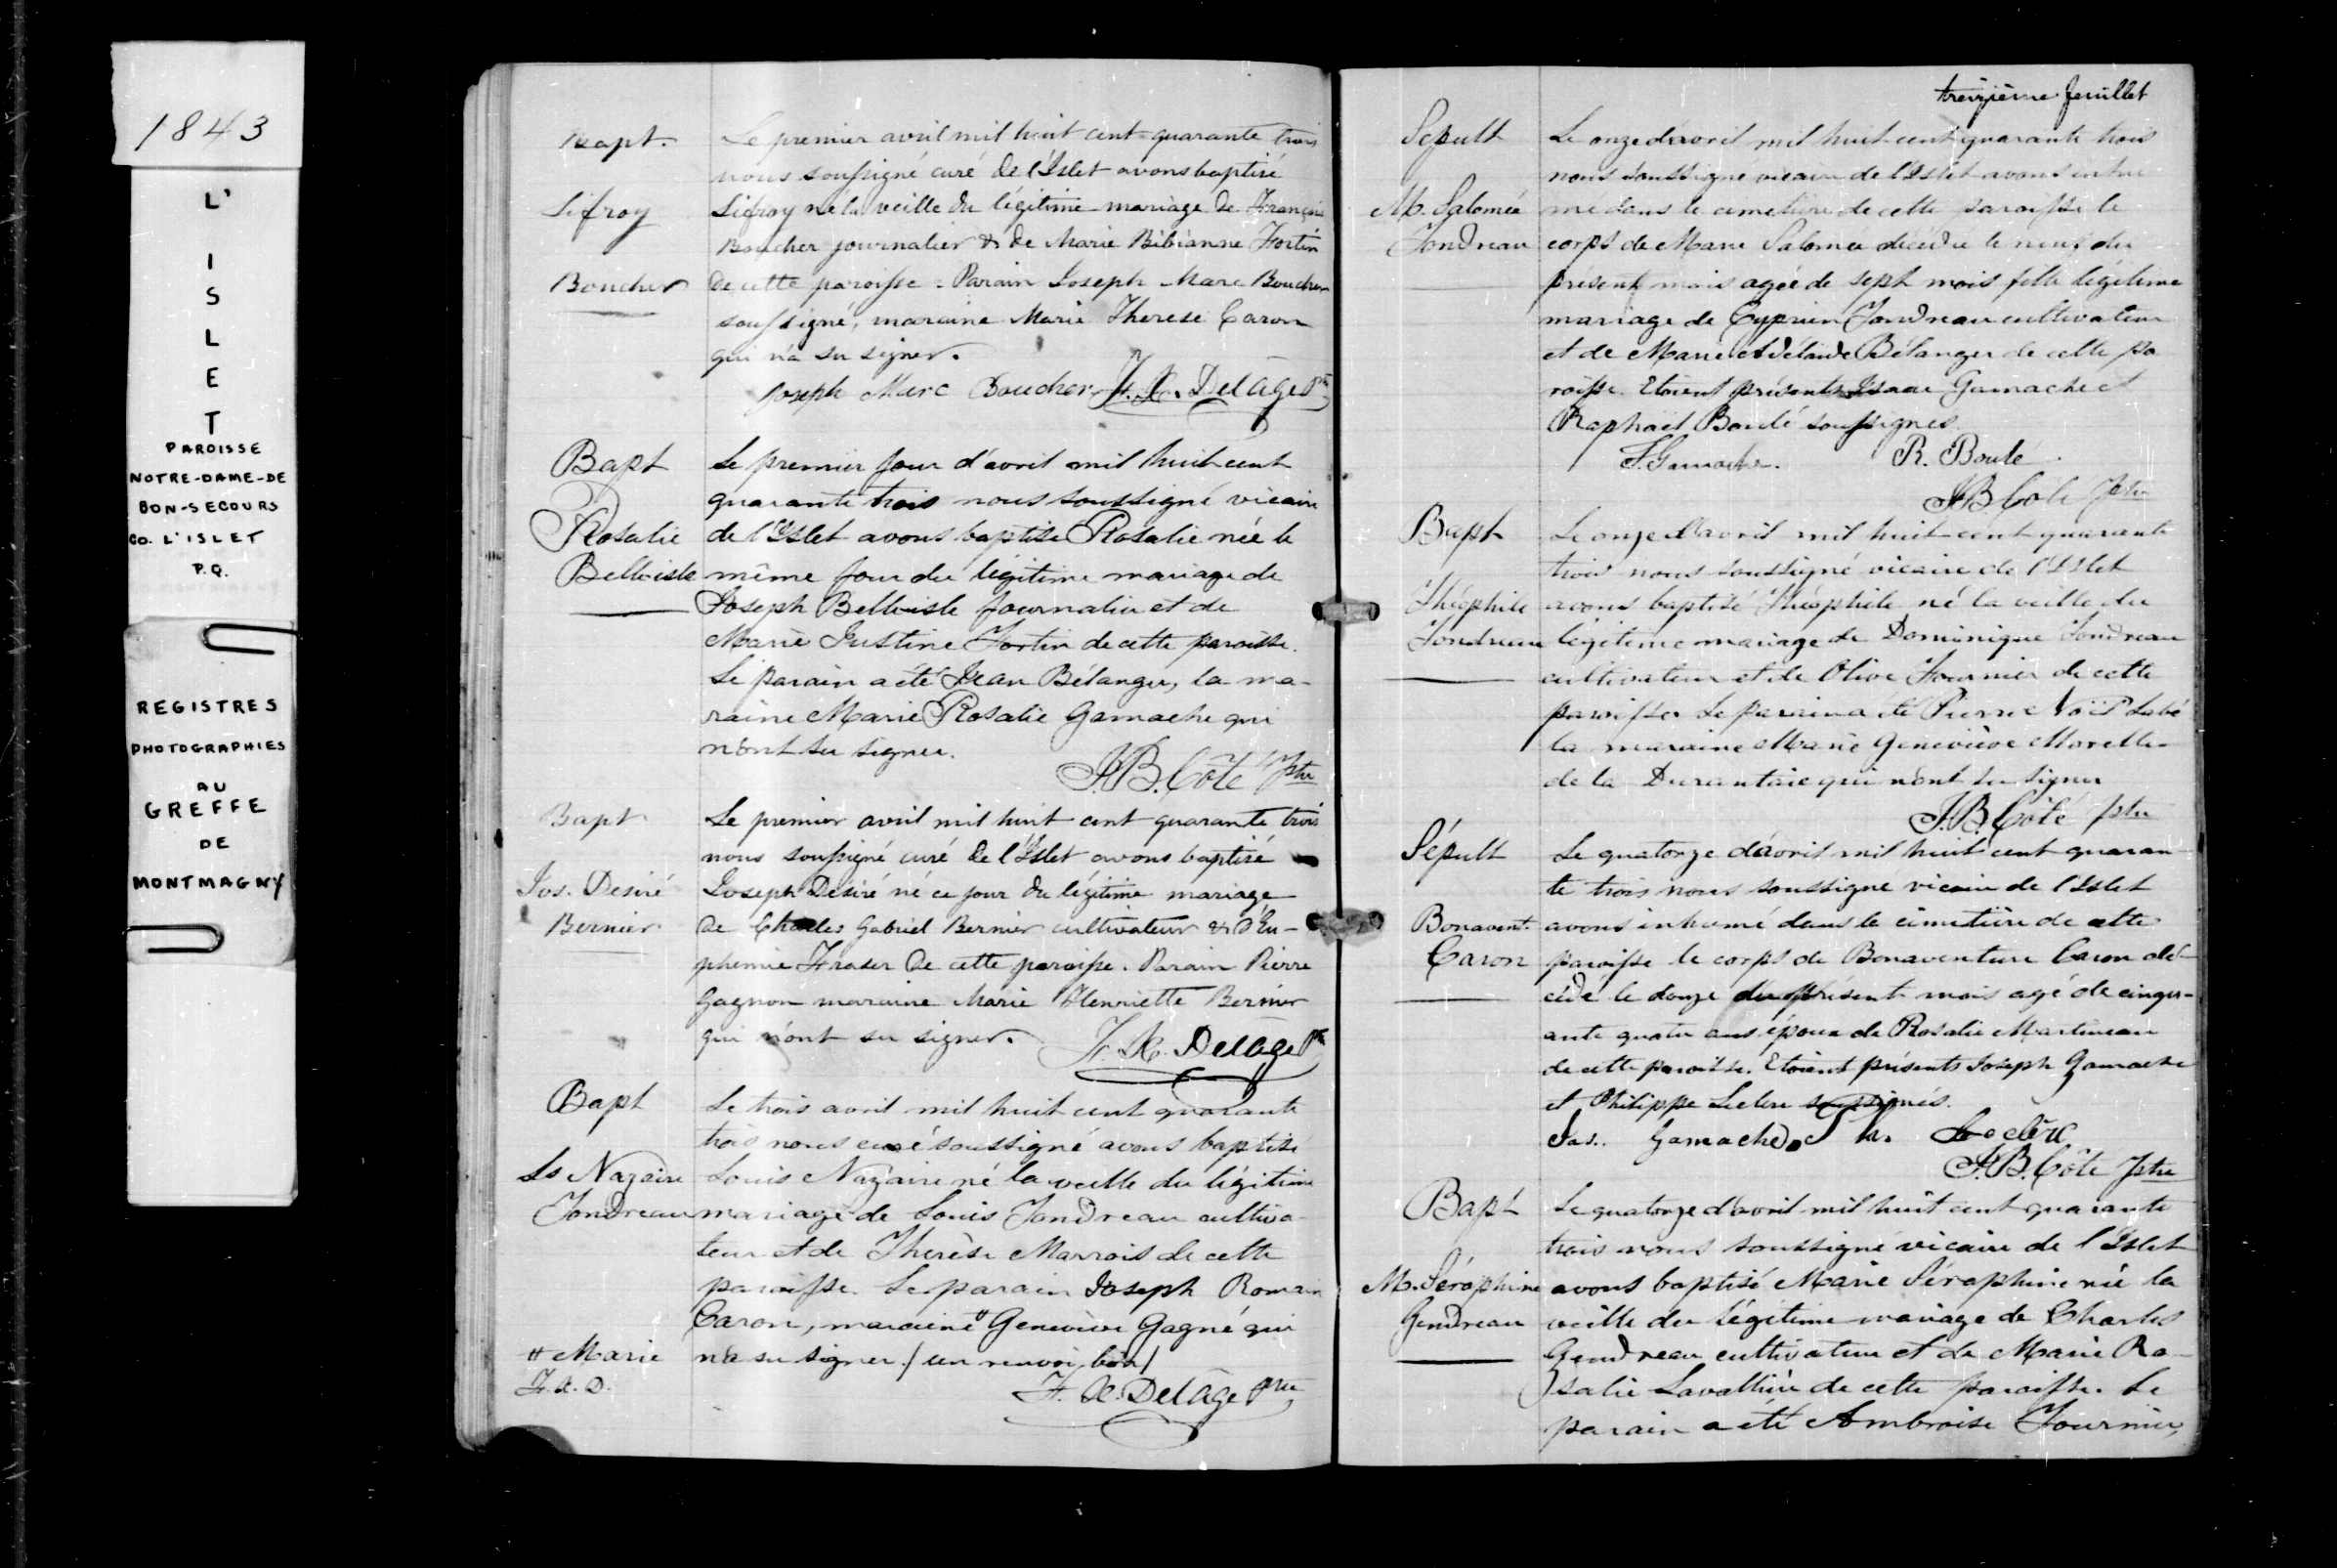 1843
L'
I
S
L
E
T
PAROISSE
NOTRE-DAME-DE
BON-SECOURS
CO. L'ISLET
P.Q.
REGISTRES
PHOTOGRAPHIES
AU
GREFFE
DE
MONTMAGNY
Bapt.
Lefroy
Boucher
Le premier avril mil huit cent quarante trois
nous soussigné curé de l'Islet avons baptisé
Lefroy né la veille du légitime mariage de François
Boucher journalier & de Marie Bibianne Fortin
de cette paroisse. Parain Joseph Marc Boucher
soussigné, maraine Marie Therese Caron
qui n'a su signer.
Joseph Marc Boucher F. X. Delâge Ptre
Bapt
Rosalie
Belleisle
Le premier jour d'avril mil huit cent
quarante trois nous soussigné vicaire
de l'Islet avons baptisé Rosalie née le
même jour du légitime mariage de
Joseph Belleisle journalier et de
Marie Justine Fortin de cette paroisse.
Le parain a été Jean Bélanger, la ma-
raine Marie Rosalie Gamache qui
n'ont su signer.
J.B. Côté Ptre
Bapt
Jos. Desiré
Bernier
Le premier avril mil huit cent quarante trois
nous soussigné curé de l'Islet avons baptisé
Joseph Desiré né ce jour du légitime mariage
de Charles Gabriel Bernier cultivateur & d'Eu-
phemie Fraser de cette paroisse. Parain Pierre
Gagnon maraine Marie Henriette Bernier
qui n'ont su signer. F. X. Delâge Ptre
Bapt
Ls Nazaire
Jondreau
Le trois avril mil huit cent quarante
trois nous curé soussigné avons baptisé
Louis Nazaire né la veille du légitime
mariage de Louis Jondreau cultiva-
teur et de Therèse Marrois de cette
paroisse. Le parain Joseph Romain
Caron, maraine # Geneviève Gagné qui
n'a su signer / un renvoi bon /
# Marie
F. X. D.
F. X. Delâge Ptre
treizième feuillet
Sepult
M. Salomée
Jondreau
Le onze d'avril mil huit cent quarante trois
nous soussigné vicaire de l'Islet avons inhu
mé dans le cimetière de cette paroisse le
corps de Marie Salomée décédée le neuf du
présent mois agée de sept mois fille légitime
mariage de Cyprien Jondreau cultivateur
et de Marie Adelaide Bélanger de cette pa
roisse. Etoient présents Isaac Gamache et
Raphael Boulé soussignés
I. Gamache. R. Boulé.
J.B. Côté Ptre
Bapt
Théophile
Jondreau
Le onze d'avril mil huit cent quarante
trois nous soussigné vicaire de l'Islet
avons baptisé Théophile né la veille du
légitime mariage de Dominique Jondreau
cultivateur et de Olive Fournier de cette
paroisse. Le parain a été Pierre Noël Labé
la maraine Marie Geneviève Morelle
de la Durantaie qui n'ont su signer
J.B. Côté Ptre
Sépult
Bonavent.
Caron
Le quatorze d'avril mil huit cent quaran
te trois nous soussigné vicaire de l'Islet
avons inhumé dans le cimetière de cette
paroisse le corps de Bonaventure Caron dé-
cédé le douze du présent mois agé de cinqu-
ante quatre ans époux de Rosalie Martineau
de cette paroisse. Etoient présents Joseph Gamache
et Philippe Leclerc soussignés.
Jos. Gamache Ph. Leclerc
J.B. Côté Ptre
Bapt
M. Séraphine
Gendreau
Le quatorze d'avril mil huit cent quarante
trois nous soussigné vicaire de l'Islet
avons baptisé Marie Séraphine née la
veille du légitime mariage de Charles
Gendreau cultivateur et de Marie Ro-
salie Lavallière de cette paroisse. Le
parain a été Ambroise Fournier,